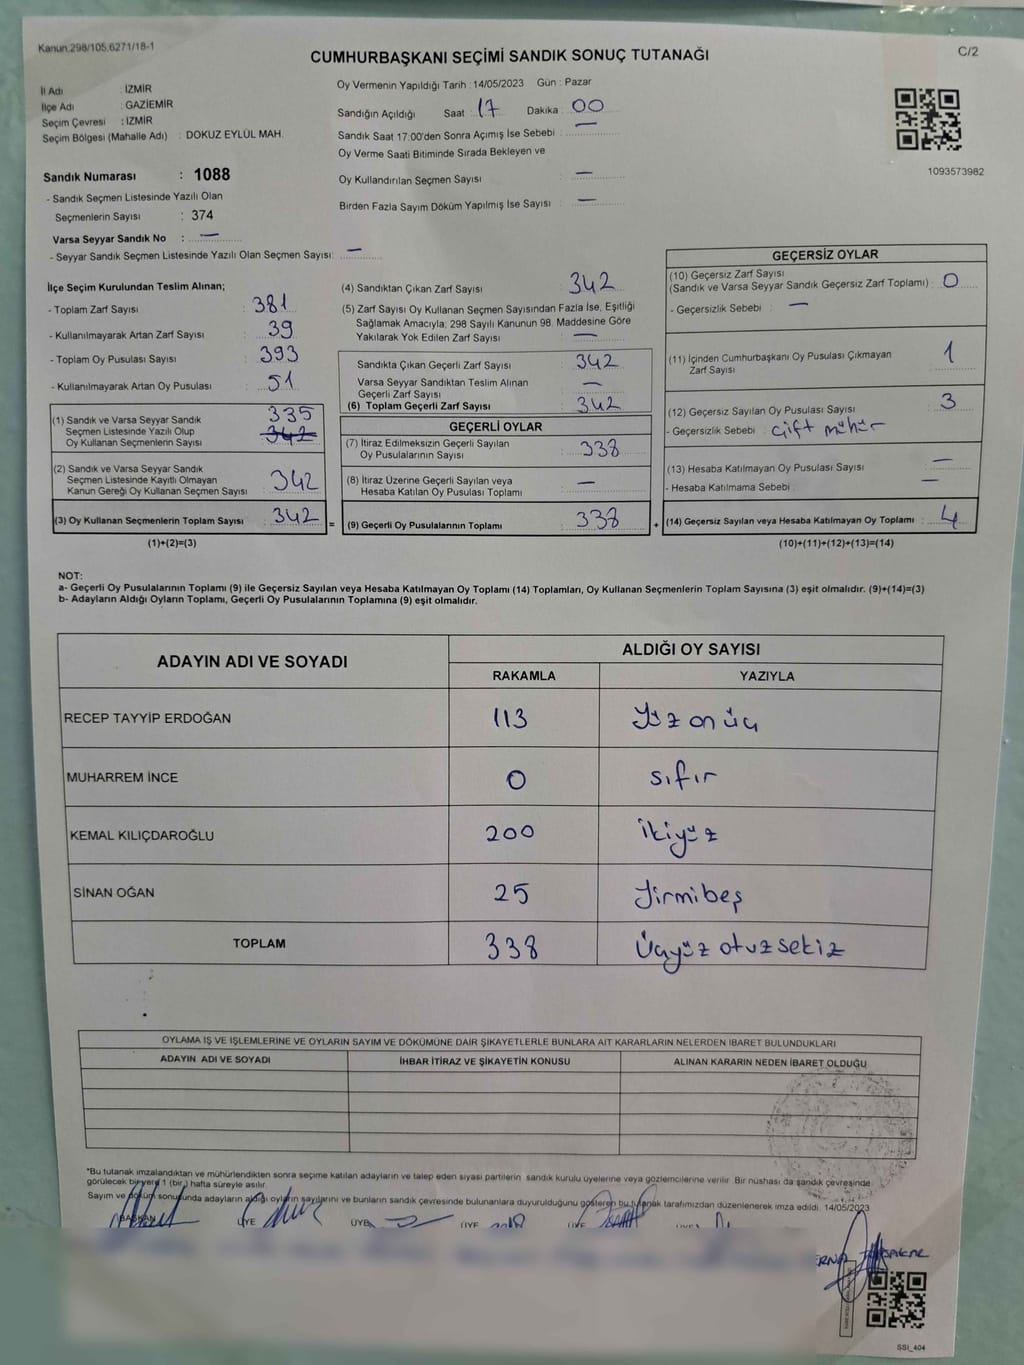 Kanun.298/105.6271/18-1
C/2
CUMHURBAŞKANI SEÇİMİ SANDIK SONUÇ TUTANAĞI
İl Adı : İZMİR
İlçe Adı : GAZİEMİR
Seçim Çevresi : İZMİR
Seçim Bölgesi (Mahalle Adı) : DOKUZ EYLÜL MAH.
Oy Vermenin Yapıldığı Tarih : 14/05/2023 Gün : Pazar
Sandığın Açıldığı Saat : 17 Dakika : 00
Sandık Saat 17.00'den Sonra Açımış İse Sebebi : —
Oy Verme Saati Bitiminde Sırada Bekleyen ve
Oy Kullandırılan Seçmen Sayısı : —
Birden Fazla Sayım Döküm Yapılmış İse Sayısı : —
1093573982
Sandık Numarası : 1088
- Sandık Seçmen Listesinde Yazılı Olan
Seçmenlerin Sayısı : 374
Varsa Seyyar Sandık No : —
- Seyyar Sandık Seçmen Listesinde Yazılı Olan Seçmen Sayısı: —
İlçe Seçim Kurulundan Teslim Alınan;
- Toplam Zarf Sayısı : 381
- Kullanılmayarak Artan Zarf Sayısı : 39
- Toplam Oy Pusulası Sayısı : 393
- Kullanılmayarak Artan Oy Pusulası : 51
(1) Sandık ve Varsa Seyyar Sandık
Seçmen Listesinde Yazılı Olup
Oy Kullanan Seçmenlerin Sayısı : 335
342
(2) Sandık ve Varsa Seyyar Sandık
Seçmen Listesinde Kayıtlı Olmayan
Kanun Gereği Oy Kullanan Seçmen Sayısı : 342
(3) Oy Kullanan Seçmenlerin Toplam Sayısı : 342 =
(1)+(2)=(3)
(4) Sandıktan Çıkan Zarf Sayısı : 342
(5) Zarf Sayısı Oy Kullanan Seçmen Sayısından Fazla İse, Eşitliği
Sağlamak Amacıyla; 298 Sayılı Kanunun 98. Maddesine Göre
Yakılarak Yok Edilen Zarf Sayısı : —
Sandıkta Çıkan Geçerli Zarf Sayısı : 342
Varsa Seyyar Sandıktan Teslim Alınan
Geçerli Zarf Sayısı : —
(6) Toplam Geçerli Zarf Sayısı : 342
GEÇERLİ OYLAR
(7) İtiraz Edilmeksizin Geçerli Sayılan
Oy Pusulalarının Sayısı : 338
(8) İtiraz Üzerine Geçerli Sayılan veya
Hesaba Katılan Oy Pusulası Toplamı : —
(9) Geçerli Oy Pusulalarının Toplamı : 338 +
GEÇERSİZ OYLAR
(10) Geçersiz Zarf Sayısı
(Sandık ve Varsa Seyyar Sandık Geçersiz Zarf Toplamı) : 0
- Geçersizlik Sebebi : —
(11) İçinden Cumhurbaşkanı Oy Pusulası Çıkmayan
Zarf Sayısı : 1
(12) Geçersiz Sayılan Oy Pusulası Sayısı : 3
- Geçersizlik Sebebi : çift mühür
(13) Hesaba Katılmayan Oy Pusulası Sayısı : —
- Hesaba Katılmama Sebebi : —
(14) Geçersiz Sayılan veya Hesaba Katılmayan Oy Toplamı : 4
(10)+(11)+(12)+(13)=(14)
NOT:
a- Geçerli Oy Pusulalarının Toplamı (9) ile Geçersiz Sayılan veya Hesaba Katılmayan Oy Toplamı (14) Toplamları, Oy Kullanan Seçmenlerin Toplam Sayısına (3) eşit olmalıdır. (9)+(14)=(3)
b- Adayların Aldığı Oyların Toplamı, Geçerli Oy Pusulalarının Toplamına (9) eşit olmalıdır.
ADAYIN ADI VE SOYADI
ALDIĞI OY SAYISI
RAKAMLA YAZIYLA
RECEP TAYYİP ERDOĞAN 113 Yüz onüç
MUHARREM İNCE 0 sıfır
KEMAL KILIÇDAROĞLU 200 ikiyüz
SİNAN OĞAN 25 Yirmibeş
TOPLAM 338 Üçyüz otuzsekiz
OYLAMA İŞ VE İŞLEMLERİNE VE OYLARIN SAYIM VE DÖKÜMÜNE DAİR ŞİKAYETLERLE BUNLARA AİT KARARLARIN NELERDEN İBARET BULUNDUKLARI
ADAYIN ADI VE SOYADI İHBAR İTİRAZ VE ŞİKAYETİN KONUSU ALINAN KARARIN NEDEN İBARET OLDUĞU
*Bu tutanak imzalandıktan ve mühürlendikten sonra seçime katılan adayların ve talep eden siyasi partilerin sandık kurulu üyelerine veya gözlemcilerine verilir. Bir nüshası da sandık çevresinde
görülecek bir yere 1 (bir) hafta süreyle asılır.
Sayım ve döküm sonusunda adayların aldığı oyların sayılarını ve bunların sandık çevresinde bulunanlara duyurulduğunu gösteren bu tutanak tarafımızdan düzenlenerek imza edildi. 14/05/2023
BAŞKAN ÜYE ÜYE ÜYE ÜYE ÜYE
SSI_404